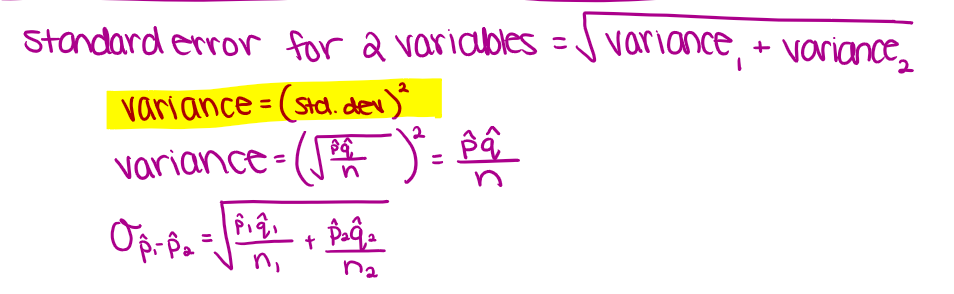 standard error for 2 variables = √(variance₁ + variance₂)
variance = (std. dev)²
variance = (√(p̂q̂/n))² = p̂q̂/n
σp̂₁-p̂₂ = √(p̂₁q̂₁/n₁ + p̂₂q̂₂/n₂)